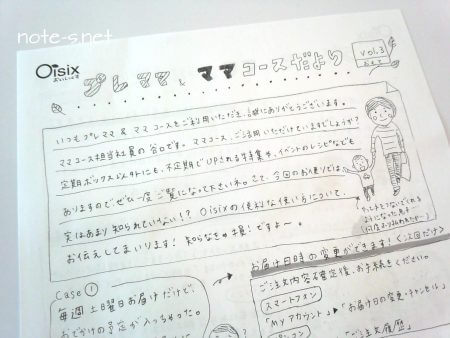 note-s.net
Oisix
おいしっくす
プレママ&ママコースだより
vol.3
おもて
いつもプレママ&ママコースをご利用いただき、誠にありがとうございます。
ママコース担当社員の谷口です。ママコース、ご活用いただけていますでしょうか?
定期ボックス以外にも、不定期でUPされる特集や、イベントのレシピなども
ありますのでぜひ一度ご覧になって下さいネ。さて、今回のお便りでは、
実はあまり知られていない!? Oisixの便利な使い方について、
お伝えしてまいります! 知らなきゃ損!ですよ〜。
やっと手をつないでくれる
ようになった息子…
お届け日時の変更ができます!<1回だけ>
Case ①
毎週土曜日お届けだけど、
おでかけの予定が入っちゃった。
ご注文内容不確定後、お手続きください。
スマートフォン
「Myアカウント」▶「お届け日の変更・キャンセル」
パソコン
「ご注文履歴」